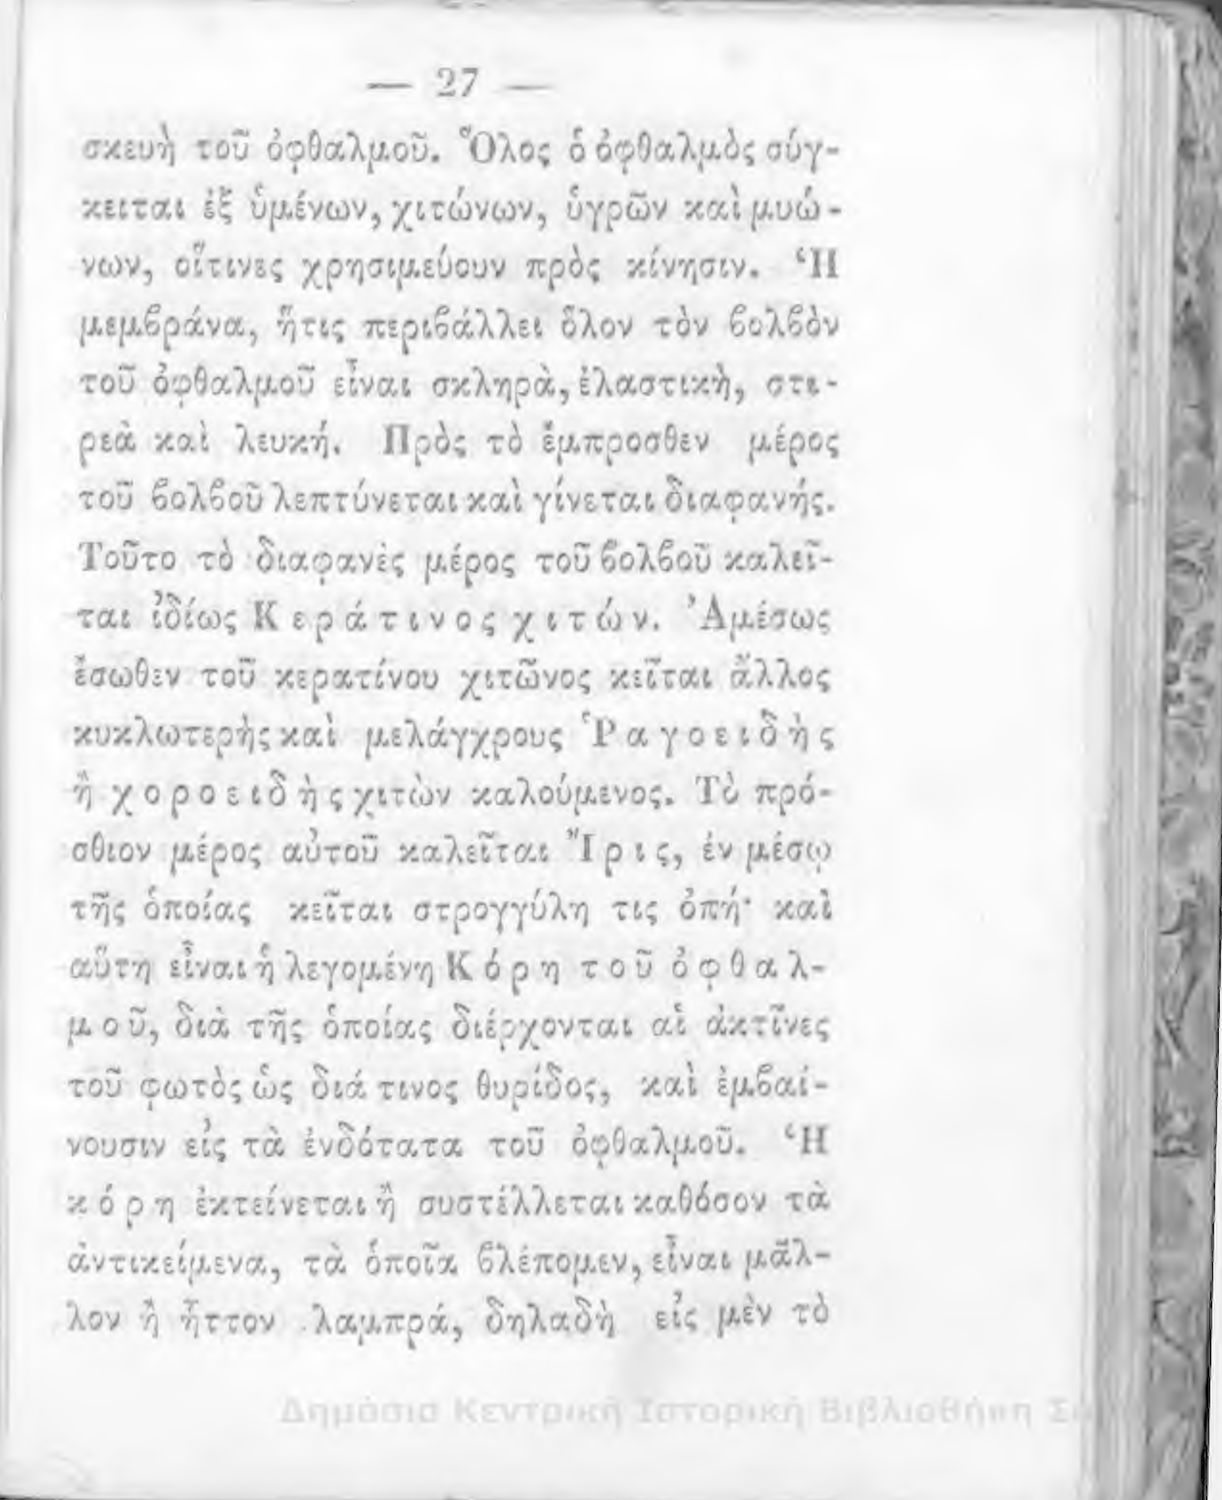 — 27 —
σκευὴ τοῦ ὀφθαλμοῦ. Ὅλος ὁ ὀφθαλμὸς σύγ-
κειται ἐξ ὑμένων, χιτώνων, ὑγρῶν καὶ μυώ-
νων, οἵτινες χρησιμεύουν πρὸς κίνησιν. Ἡ
μεμβράνα, ἥτις περιβάλλει ὅλον τὸν βολβὸν
τοῦ ὀφθαλμοῦ εἶναι σκληρὰ, ἐλαστικὴ, στε-
ρεὰ καὶ λευκή. Πρὸς τὸ ἔμπροσθεν μέρος
τοῦ βολβοῦ λεπτύνεται καὶ γίνεται διαφανής.
Τοῦτο τὸ διαφανὲς μέρος τοῦ βολβοῦ καλεῖ-
ται ἰδίως Κεράτινος χιτών. Ἀμέσως
ἔσωθεν τοῦ κερατίνου χιτῶνος κεῖται ἄλλος
κυκλωτερὴς καὶ μελάγχρους Ῥαγοειδὴς
ἢ χοροειδὴς χιτὼν καλούμενος. Τὸ πρό-
σθιον μέρος αὐτοῦ καλεῖται Ἴρις, ἐν μέσῳ
τῆς ὁποίας κεῖται στρογγύλη τις ὀπή· καὶ
αὕτη εἶναι ἡ λεγομένη Κόρη τοῦ ὀφθαλ-
μοῦ, διὰ τῆς ὁποίας διέρχονται αἱ ἀκτῖνες
τοῦ φωτὸς ὡς διά τινος θυρίδος, καὶ ἐμβαί-
νουσιν εἰς τὰ ἐνδότατα τοῦ ὀφθαλμοῦ. Ἡ
κόρη ἐκτείνεται ἢ συστέλλεται καθόσον τὰ
ἀντικείμενα, τὰ ὁποῖα βλέπομεν, εἶναι μᾶλ-
λον ἢ ἧττον λαμπρά, δηλαδὴ εἰς μὲν τὸ
Δημόσια Κεντρική Ιστορική Βιβλιοθήκη